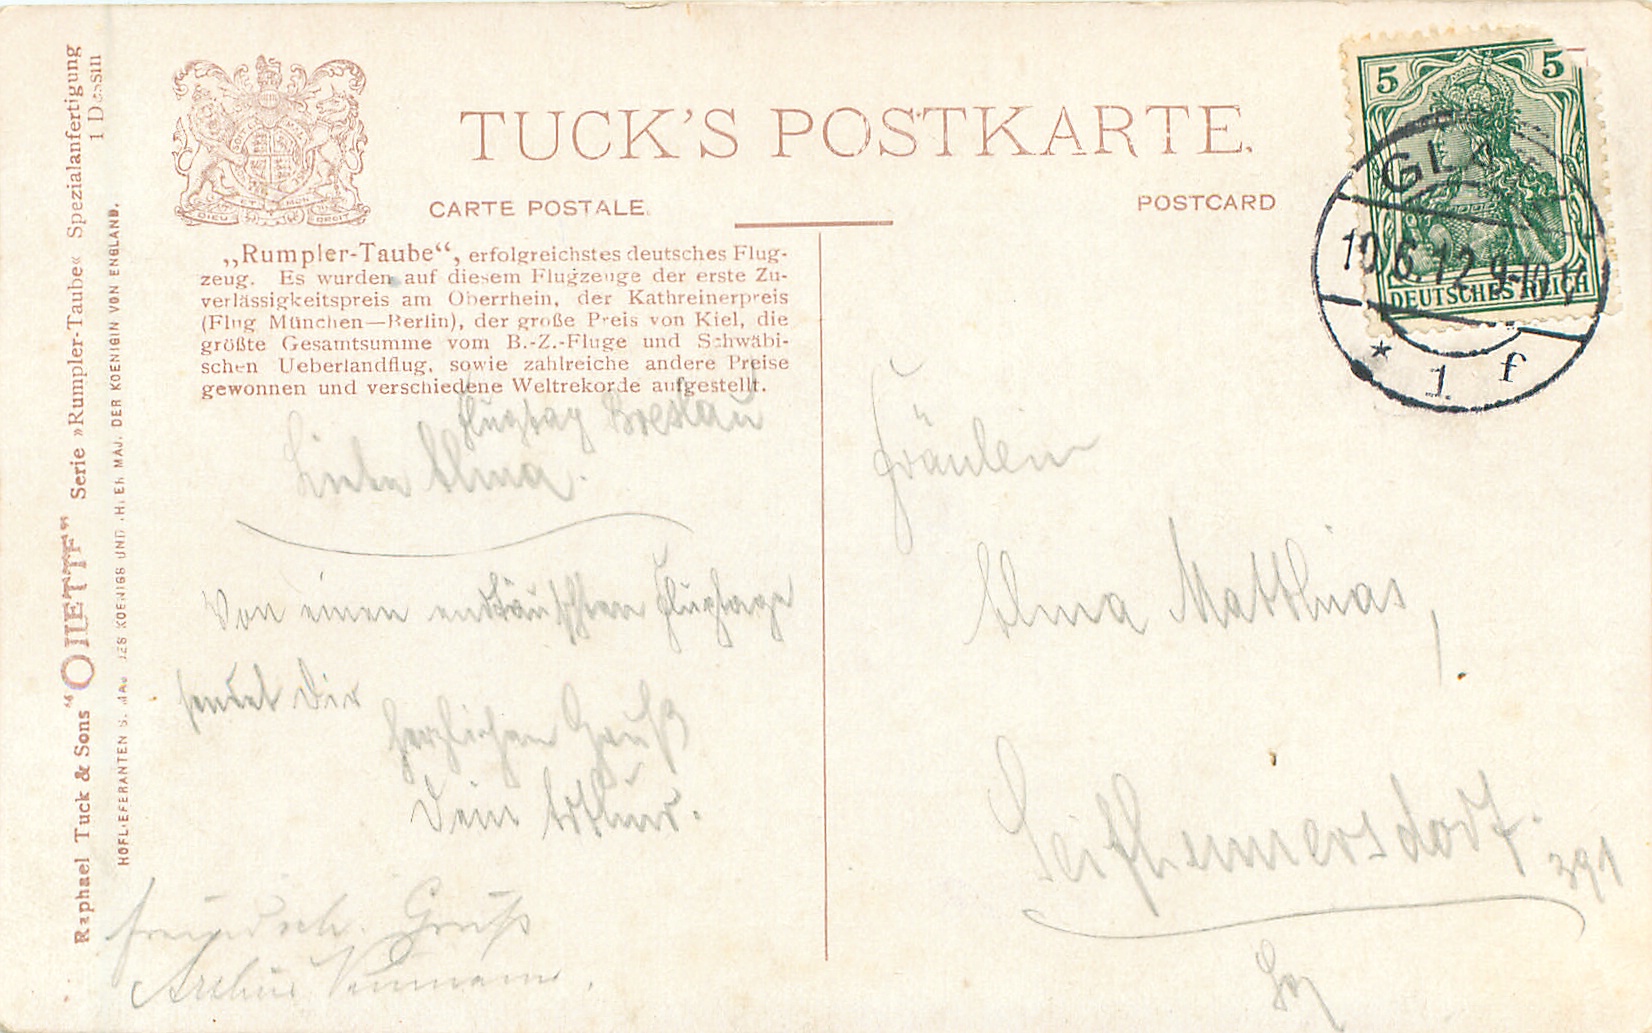 TUCK'S POSTKARTE.
CARTE POSTALE.
POSTCARD
„Rumpler-Taube“, erfolgreichstes deutsches Flug-
zeug. Es wurden auf diesem Flugzeuge der erste Zu-
verlässigkeitspreis am Oberrhein, der Kathreinerpreis
(Flug München—Berlin), der große Preis von Kiel, die
größte Gesamtsumme vom B.-Z.-Fluge und Schwäbi-
schen Ueberlandflug, sowie zahlreiche andere Preise
gewonnen und verschiedene Weltrekorde aufgestellt.
Flugtag Breslau
Liebe Alma.
Von einen endtäuschten Flugtage
sendet Dir
herzlichen Gruß
Dein Arthur.
freundsch. Gruß
Arthur
Raphael Tuck & Sons “OILETTE” Serie »Rumpler-Taube« Spezialanfertigung
1 Dessin
HOFLIEFERANTEN S. MAJ. DES KOENIGS UND IHRER MAJ. DER KOENIGIN VON ENGLAND.
DIEU ET MON DROIT
5 5
DEUTSCHES REICH
10.6.12.9-10V
* 1 f
Fräulein
Alma Matthias,
Seifhennersdorf.
391